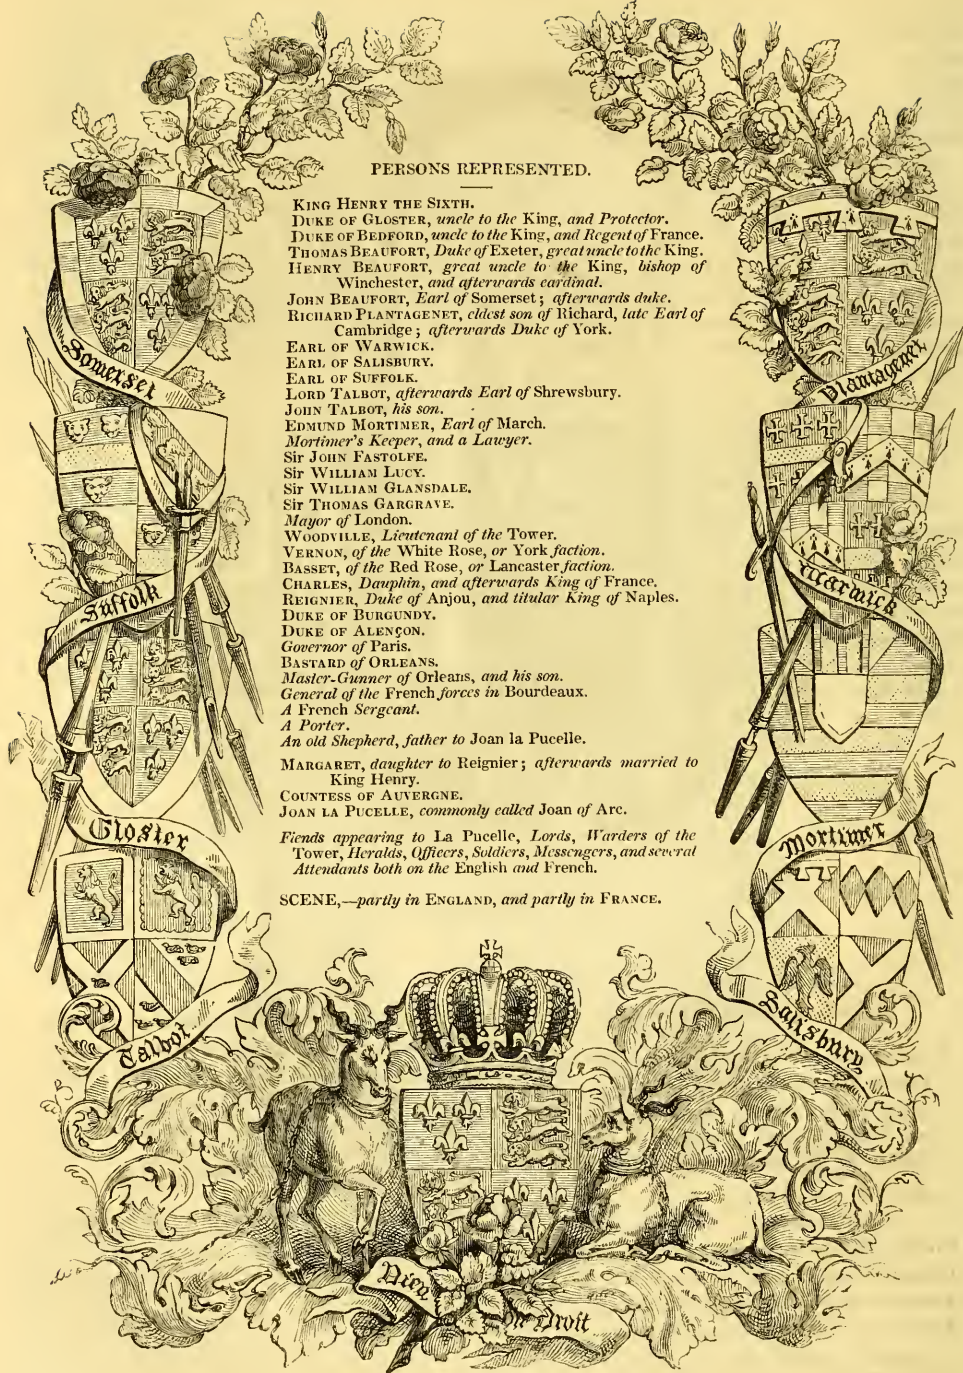 PERSONS REPRESENTED.
KING HENRY THE SIXTH.
DUKE OF GLOSTER, uncle to the King, and Protector.
DUKE OF BEDFORD, uncle to the King, and Regent of France.
THOMAS BEAUFORT, Duke of Exeter, great uncle to the King.
HENRY BEAUFORT, great uncle to the King, bishop of
Winchester, and afterwards cardinal.
JOHN BEAUFORT, Earl of Somerset; afterwards duke.
RICHARD PLANTAGENET, eldest son of Richard, late Earl of
Cambridge; afterwards Duke of York.
EARL OF WARWICK.
EARL OF SALISBURY.
EARL OF SUFFOLK.
LORD TALBOT, afterwards Earl of Shrewsbury.
JOHN TALBOT, his son.
EDMUND MORTIMER, Earl of March.
Mortimer's Keeper, and a Lawyer.
Sir JOHN FASTOLFE.
Sir WILLIAM LUCY.
Sir WILLIAM GLANSDALE.
Sir THOMAS GARGRAVE.
Mayor of London.
WOODVILLE, Lieutenant of the Tower.
VERNON, of the White Rose, or York faction.
BASSET, of the Red Rose, or Lancaster faction.
CHARLES, Dauphin, and afterwards King of France.
REIGNIER, Duke of Anjou, and titular King of Naples.
DUKE OF BURGUNDY.
DUKE OF ALENÇON.
Governor of Paris.
BASTARD of ORLEANS.
Master-Gunner of Orleans, and his son.
General of the French forces in Bourdeaux.
A French Sergeant.
A Porter.
An old Shepherd, father to Joan la Pucelle.
MARGARET, daughter to Reignier; afterwards married to
King Henry.
COUNTESS OF AUVERGNE.
JOAN LA PUCELLE, commonly called Joan of Arc.
Fiends appearing to La Pucelle, Lords, Warders of the
Tower, Heralds, Officers, Soldiers, Messengers, and several
Attendants both on the English and French.
SCENE,—partly in ENGLAND, and partly in FRANCE.
Somerset
Suffolk
Gloster
Talbot
Plantagenet
Warwick
Mortimer
Salisbury
Dieu
Droit